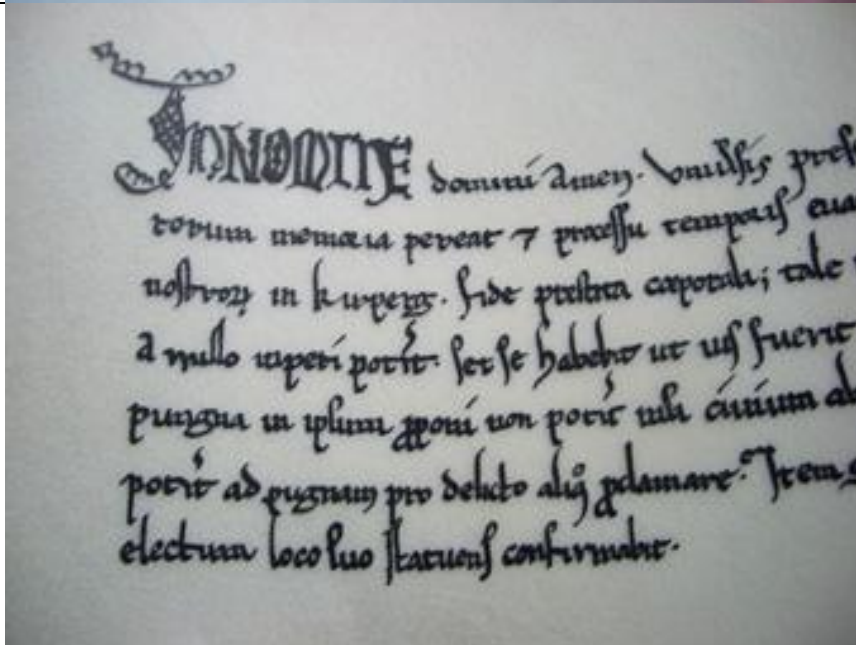 IN NOMINE domini Amen. Vniũsis pres
torum memoria pereat ⁊ processu temporis eua
nostroꝝ in fide prestita corporali; tale
a nullo inpeti potit. set se habebit ut uis fuerit
pungna in ipsum ꝓponi non potit nisi ciuium
potit ad pugnam pro delicto aliq̊ ꝓclamare. Item
electum loco suo statuens confirmabit.